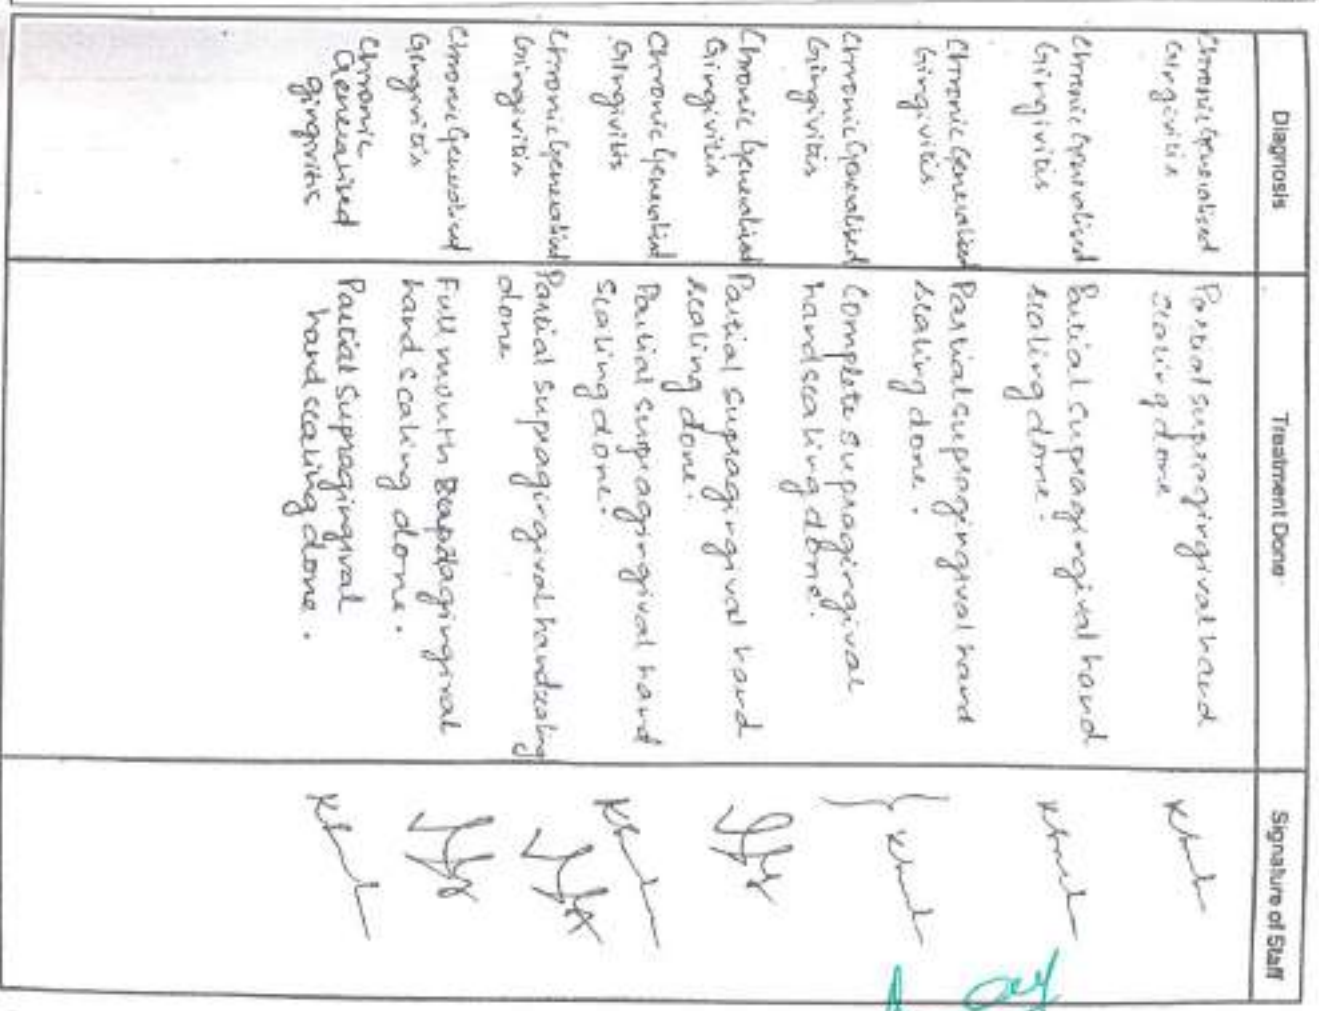 Diagnosis
Treatment Done
Signature of Staff
Chronic Generalised
Gingivitis
Partial supragingival hand
scaling done
Chronic Generalised
Gingivitis
Partial supragingival hand
scaling done.
Chronic Generalised
Gingivitis
Partial supragingival hand
scaling done.
Chronic Generalised
Gingivitis
Complete supragingival
hand scaling done.
Chronic Generalised
Gingivitis
Partial supragingival hand
scaling done.
Chronic Generalised
Gingivitis
Partial supragingival hand
scaling done.
Chronic Generalised
Gingivitis
Partial supragingival handscaling
done
Chronic Generalised
Gingivitis
Full mouth supragingival
hand scaling done.
Chronic
Generalised
gingivitis
Partial supragingival
hand scaling done.